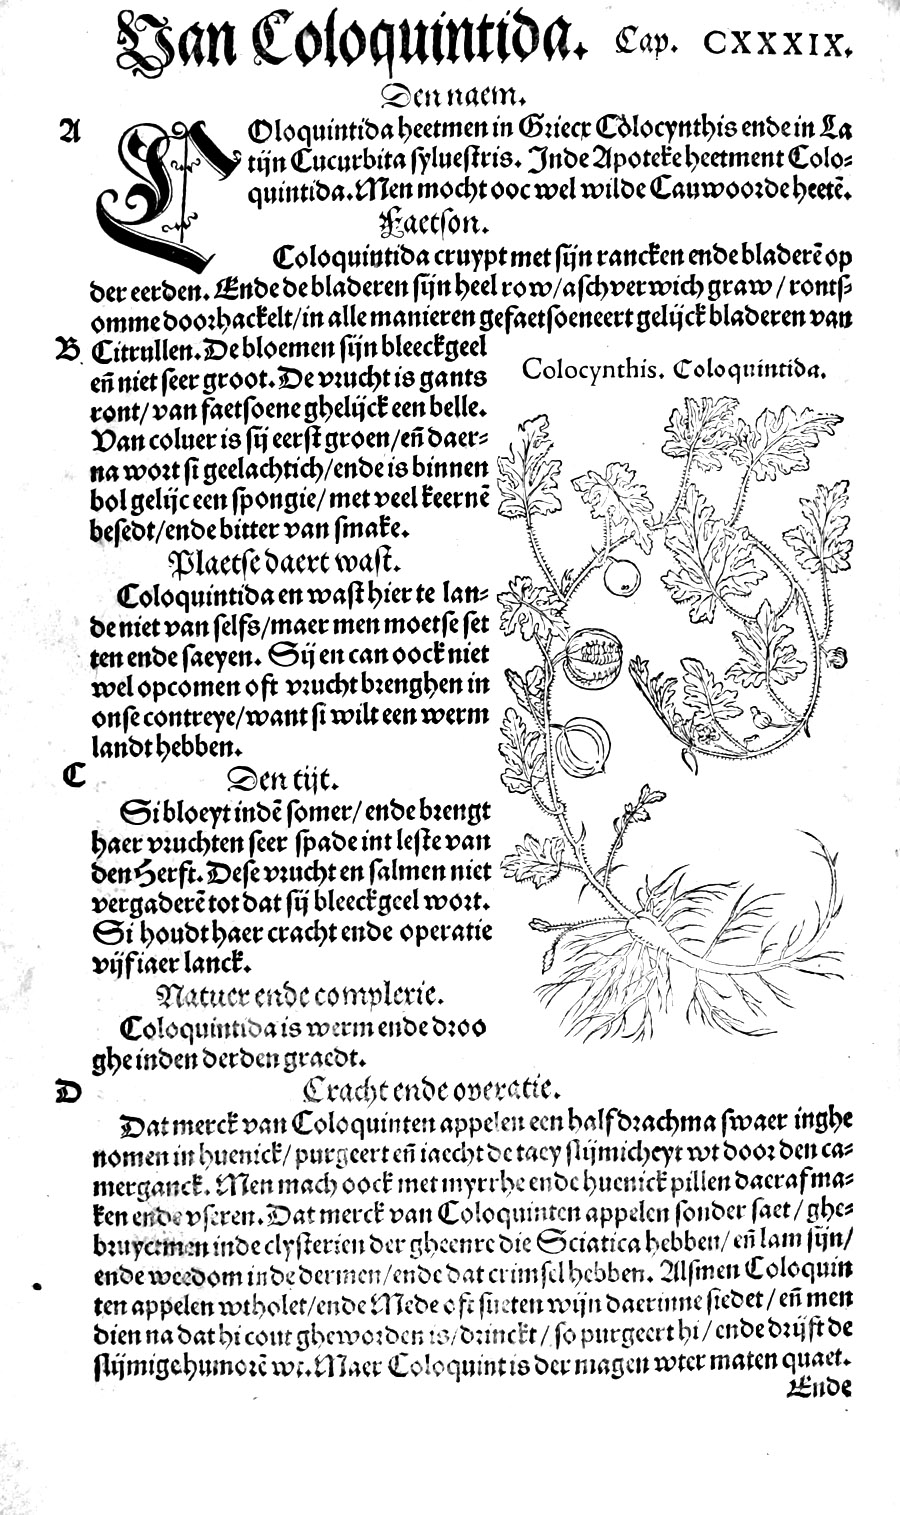 Van Coloquintida. Cap. CXXXIX.
Den naem.
A
COloquintida heetmen in Griecx Colocynthis ende in La
tijn Cucurbita syluestris. Inde Apoteke heetment Colo-
quintida. Men mocht ooc wel wilde Cauwoorde heetē.
Faetson.
Coloquintida cruypt met sijn rancken ende bladerē op
der eerden. Ende de bladeren sijn heel row/ aschverwich graw / ronts-
omme doorhackelt/ in alle manieren gefaetsoeneert gelijck bladeren van
B Citrullen. De bloemen sijn bleeckgeel
eñ niet seer groot. De vrucht is gants
ront/ van faetsoene ghelijck een belle.
Van coluer is sij eerst groen/ eñ daer-
na wort si geelachtich/ ende is binnen
bol gelijc een spongie/ met veel keernē
besedt/ ende bitter van smake.
Colocynthis. Coloquintida.
Plaetse daert wast.
Coloquintida en wast hier te lan-
de niet van selfs/ maer men moetse set
ten ende saeyen. Sij en can oock niet
wel opcomen oft vrucht brenghen in
onse contreye/ want si wilt een werm
landt hebben.
C
Den tijt.
Si bloeyt indē somer/ ende brengt
haer vruchten seer spade int leste van
den Herfst. Dese vrucht en salmen niet
vergaderē tot dat sij bleeckgeel wort.
Si houdt haer cracht ende operatie
vijf iaer lanck.
Natuer ende complexie.
Coloquintida is werm ende droo
ghe inden derden graedt.
D
Cracht ende operatie.
Dat merck van Coloquinten appelen een half drachma swaer inghe
nomen in huenick/ purgeert eñ iaecht de taey slijmicheyt wt door den ca-
merganck. Men mach oock met myrrhe ende huenick pillen daeraf ma-
ken ende vseren. Dat merck van Coloquinten appelen sonder saet / ghe-
bruyctmen inde clysterien der gheenre die Sciatica hebben/ eñ lam sijn/
ende weedom inde dermen/ ende dat crimsel hebben. Alsmen Coloquin
ten appelen wtholet/ ende Mede oft sueten wijn daerinne siedet / eñ men
dien na dat hi cout gheworden is/ drinckt / so purgeert hi / ende drijft de
slijmige humorē wt. Maer Coloquint is der magen wter maten quaet.
Ende